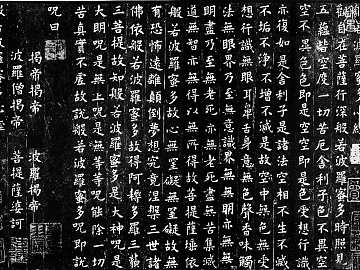 觀自在菩薩行深般若波羅蜜多時照見
五蘊皆空度一切苦厄舍利子色不異空
空不異色色即是空空即是色受想行識
亦復如是舍利子是諸法空相不生不滅
不垢不淨不增不減是故空中無色無受
想行識無眼耳鼻舌身意無色聲香味觸
法無眼界乃至無意識界無無明亦無無
明盡乃至無老死亦無老死盡無苦集滅
道無智亦無得以無所得故菩提薩埵依
般若波羅蜜多故心無罣礙無罣礙故無
有恐怖遠離顛倒夢想究竟涅槃三世諸
佛依般若波羅蜜多故得阿耨多羅三藐
三菩提故知般若波羅蜜多是大神呪是
大明呪是無上呪是無等等呪能除一切
苦真實不虛故說般若波羅蜜多呪即說
呪曰
揭帝揭帝 波羅揭帝
波羅僧揭帝 菩提薩婆訶